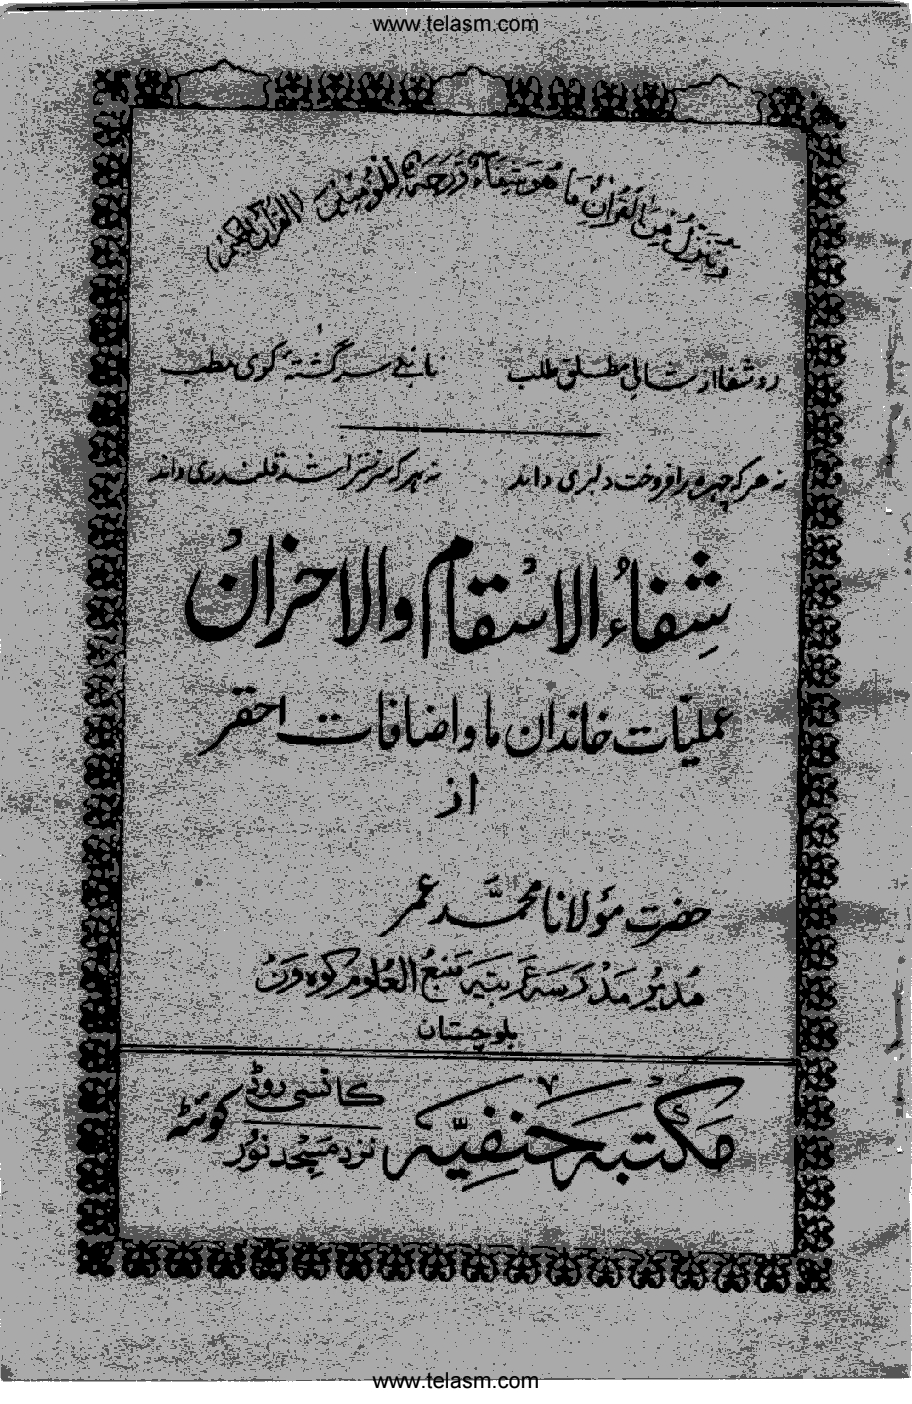 www.telasm.com
وَنُنَزِّلُ مِنَ الْقُرْآنِ مَا هُوَ شِفَاءٌ وَّرَحْمَةٌ لِّلْمُؤْمِنِيْنَ (القرآن الحكيم)
رو شفا از شافیٔ مطلق طلب
تابکے سرگشتهٔ گردی مطب
نه هر که چهره برافروخت دلبری داند
نه هر که سر بتراشد قلندری داند
شِفاءُ الاسْقام والاحزانْ
عملیّات خاندان ما و اضافات احقر
از
حضرتِ مؤلانا محمّد عمر
مُدیرُ مَدْرَسَه عَربیّه مَنبعُ العلوم کوه ون
بلوچستان
مکتبہ حنفیّہ
کانسی روڈ
نزد مَسْجِد نُور
کوئٹہ
www.telasm.com